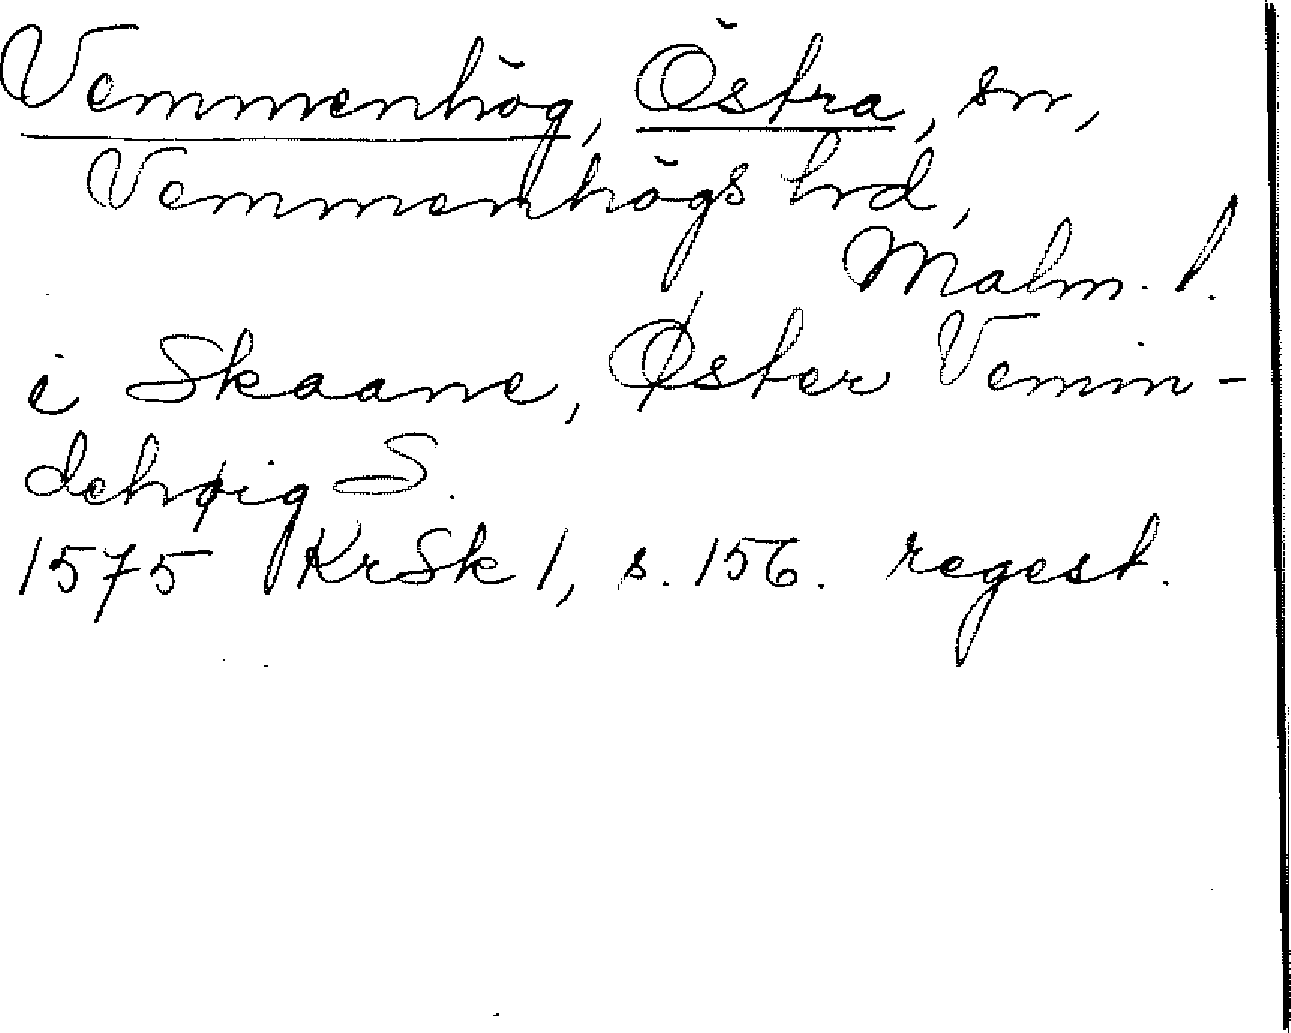 Vemmenhög, Östra, sn,
Vemmenhögs hrd,
Malm. l.
i Skaane, Øster Vemin-
dehøig S.
1575 KrSk 1, s. 156. regest.